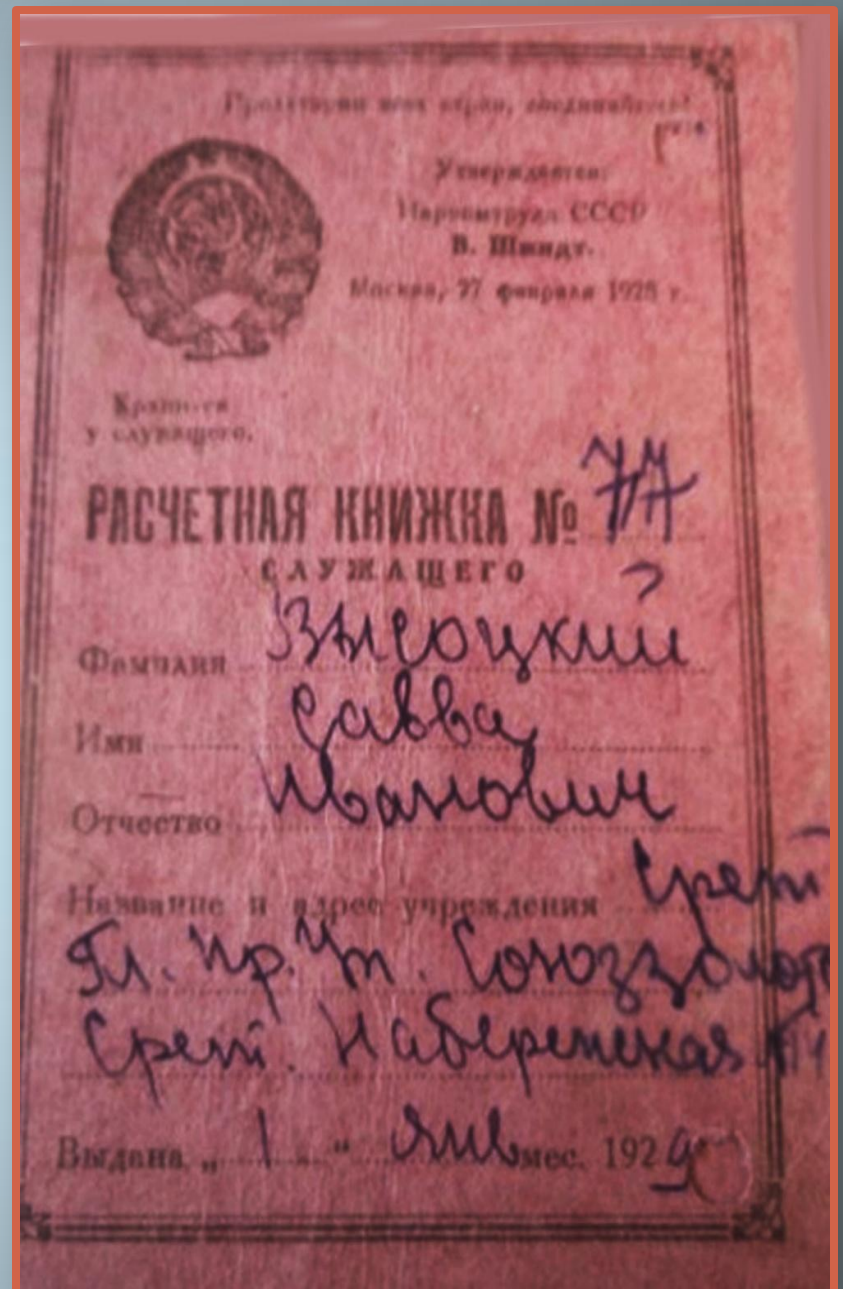 Пролетарии всех стран, соединяйтесь!
Утверждается:
Наркомтруда СССР
В. Шмидт.
Москва, 27 февраля 1928 г.
Хранится
у служащего.
РАСЧЕТНАЯ КНИЖКА № 77
СЛУЖАЩЕГО
Фамилия Высоцкий
Имя Савва
Отчество Иванович
Название и адрес учреждения Срет
Гл. Пр. Союззолот
Срет. Набережная
Выдана „1“ янв мес. 1929